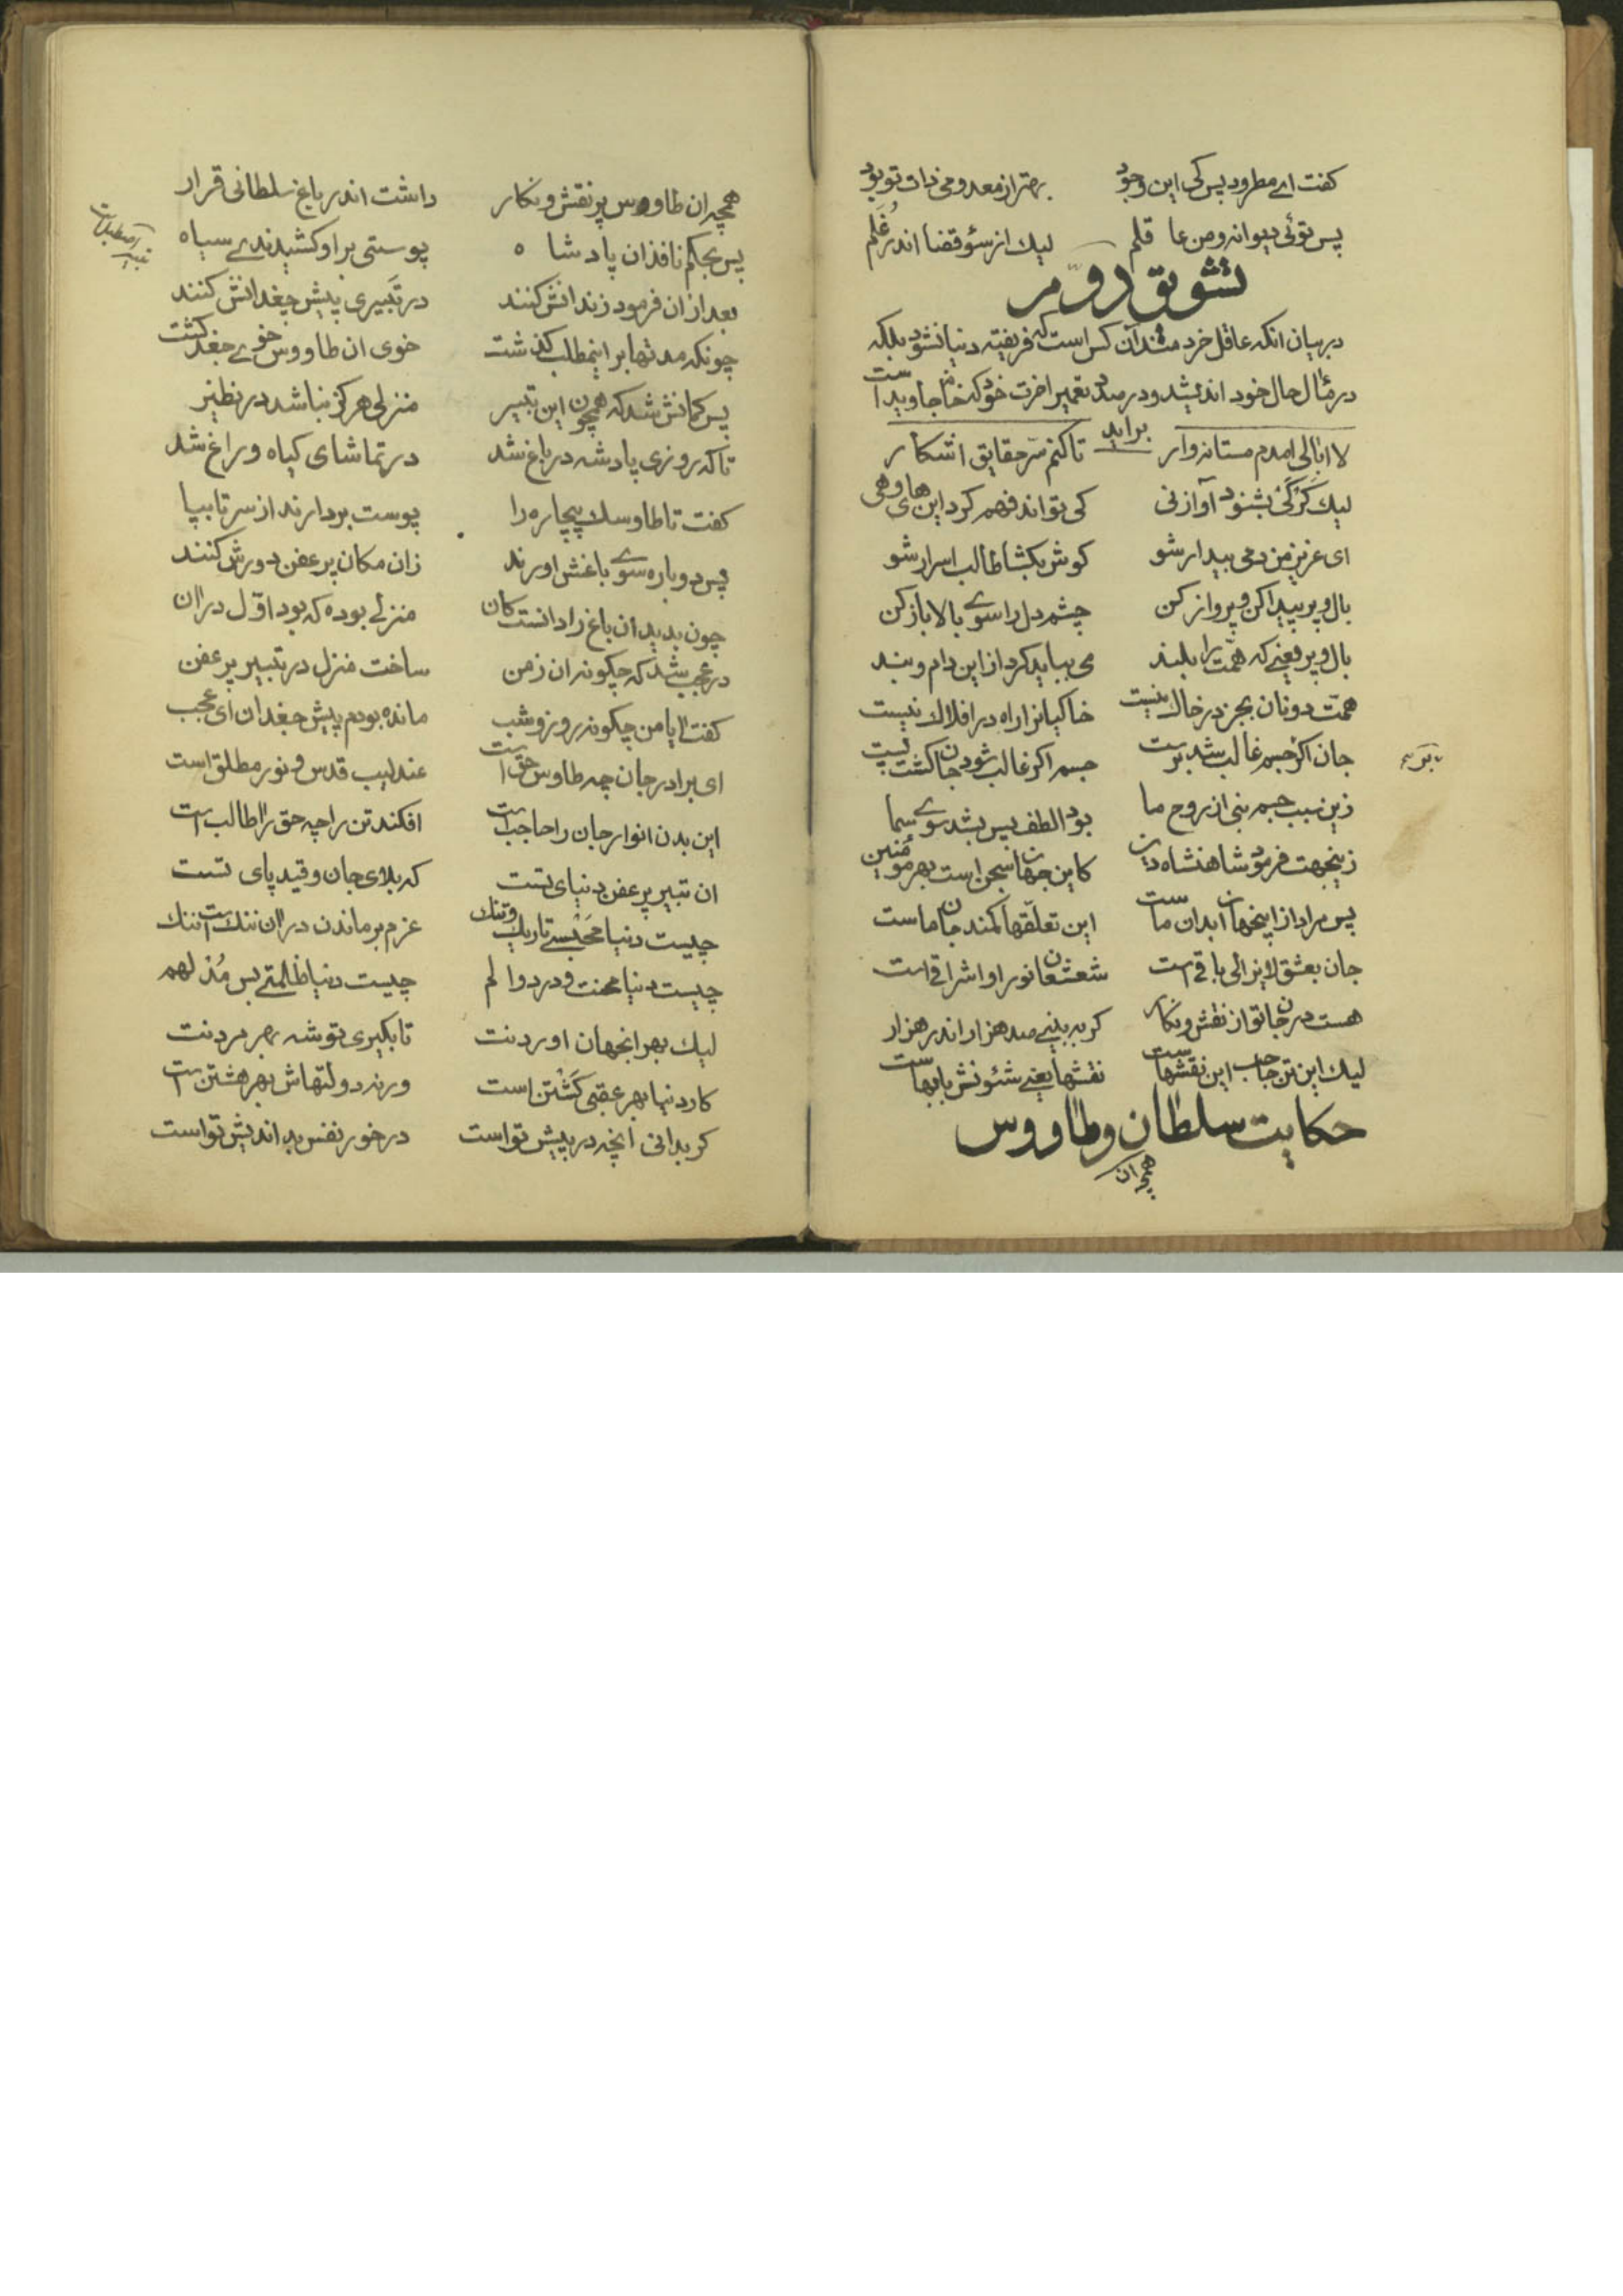 کفت ای مطرود پس کی این وجود بهتر از معدومی ذات تو بود
پس توئی دیوانه و من عا قلم لیك از سؤ قضا اندر غلم
تشویق دوّم
در بیان انکه عاقل خردمند آن کس است که فریفته دنیا نشود بلکه
در مآل حال خود اندیشد و در صدد تعمیر اخرت خود که جاوید است
براید
لا ابالی امدم مستانه وار تا کنم سرّ حقایق اشکار
لیك کَر کَی بشنود آواز نی کی تواند فهم کرد این های و هی
ای عزیز من دمی بیدار شو کوش بکشا طالب اسرار شو
بال و پر پیدا کن و پرواز کن چشم دل را سوی بالا باز کن
بال و پر یعنی که همّت را بلند می بباید کرد از این دام و بند
همّت دونان بجز در خاك نیست خاکیانرا راه در افلاك نیست
جان اکر جسم غالب شد برست جسم اکر غالب شود جان کشت پست
زین سبب جسم نبی از روح ما بود الطف پس بشد سوی سما
زینجهت فرمود شاهنشاه دین کاین جهان سجن است بهر مؤمنین
پس مراد از اینجهان ابدان ماست این تعلّقها کمند جان ماست
جان بعشق لایزالی باقی است شعشعان نور او اشراقی است
هست در جان تو از نقش و نکار کر به بینی صد هزار اندر هزار
لیك این تن حاجب این نقشهاست نقشها یعنی شئونش بابهاست
حکایت سلطان و طاووس
همچه ان
همچه ان طاووس پر نقش و نکار داشت اندر باغ سلطانی قرار
پس بحکم نافذ ان پادشا ه پوستی بر او کشیدندی سیاه
بعد از ان فرمود زندانش کنند در تَبیری پیش جغدانش کنند
چونکه مدتها بر اینمطلب کذشت خوی ان طاووس خوی جغد کشت
پس کمانش شد که همچون این تبیر منزلی هرکز نباشد در نظیر
تا که روزی پادشه در باغ شد در تماشای کیاه و راغ شد
کفت تا طاوسك بیچاره را پوست بردارند از سر تا بپا
پس دوباره سوی باغش اورند زان مکان پر عفن دورش کنند
چون بدید ان باغ را دانست کان منزلی بوده که بود اوّل در ان
در عجب شد که چکونه ان زمن ساخت منزل در تبیر پر عفن
کفت ایا من چکونه روز و شب مانده بودم پیش جغدان ای عجب
ای برادر جان چه طاوس حق است عندلیب قدس و نور مطلق است
این بدن انوار جان را حاجب است افکند تن را چه حق را طالب است
ان تبیر پر عفن دنیای تست که بلای جان و قید پای تست
چیست دنیا مَحْبَسی تاریك و تنك عزم بر ماندن در ان ننك است ننك
چیست دنیا محنت و درد و الم چیست دنیا ظلمتی بس مُدلهم
لیك بهر انجهان اوردنت تا بکیری توشه بهر مردنت
کار دنیا بهر عقبی کَشْتن است ورنه دولتهاش بهر هشتن است
کر بدانی انچه در پیش تو است در خور نفس بد اندیش تو است